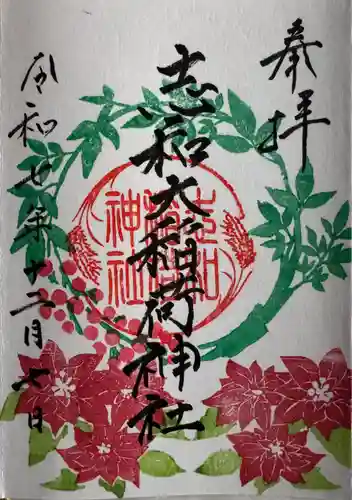 奉拝
志和古稲荷神社
令和七年十二月七日
志和
稲荷
神社